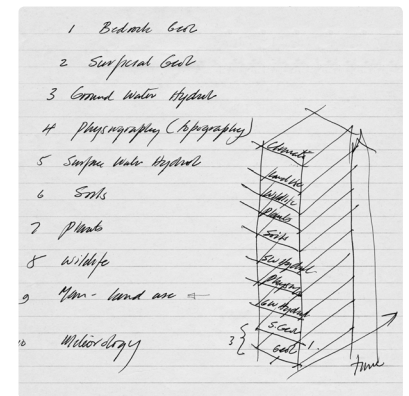 1 Bedrock Geol
2 Surficial Geol
3 Ground Water Hydrol
4 Physiography (topography)
5 Surface Water Hydrol
6 Soils
7 Plants
8 Wildlife
9 Man - land use
10 Meteorology
Climate
Land Use
Wildlife
Plants
Soils
SW Hydrol.
Physiog
GW Hydrol
S. Geol
3
Geol
1.
time